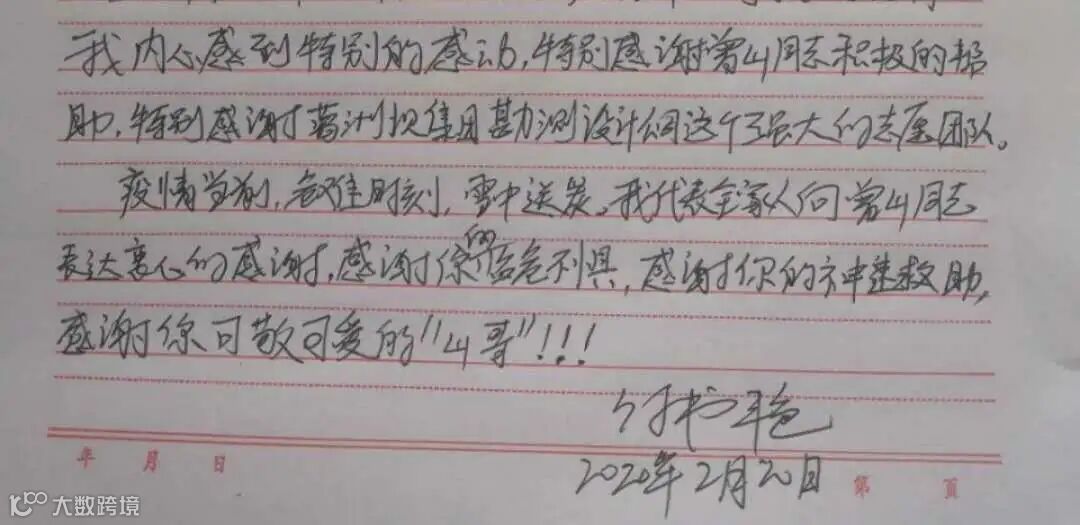 我内心感到特别的感动,特别感谢曾山同志积极的帮
助,特别感谢葛洲坝集团勘测设计公司这个强大的志愿团队。
疫情当前,危难时刻,雪中送炭。我代表全家人向曾山同志
表达衷心的感谢,感谢你的临危不惧,感谢你的神速救助,
感谢你可敬可爱的"山哥"!!!
书艳
2020年2月20日
年 月 日
第 页
大数跨境